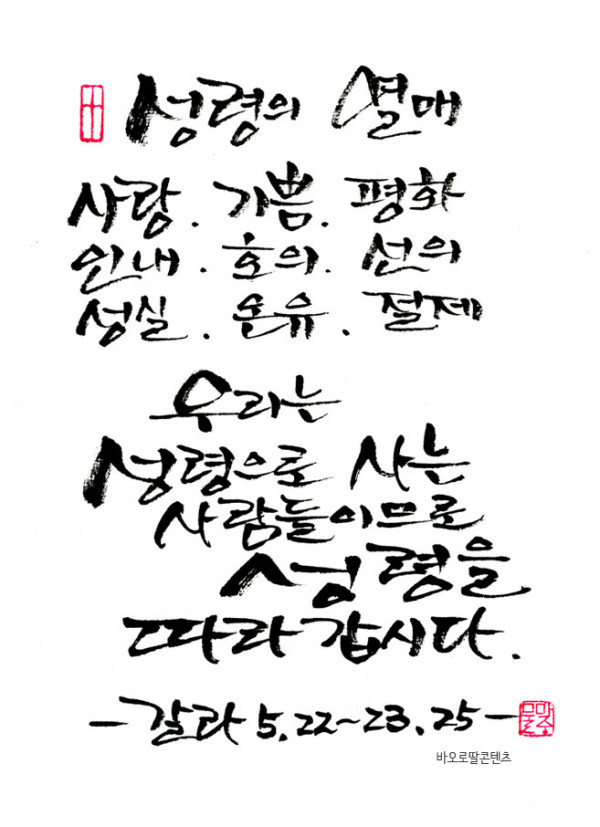 성령의 열매
사랑. 기쁨. 평화
인내. 호의. 선의
성실. 온유. 절제
우리는
성령으로 사는
사람들이므로
성령을
따라갑시다.
-갈라 5,22~23.25-
바오로딸콘텐츠